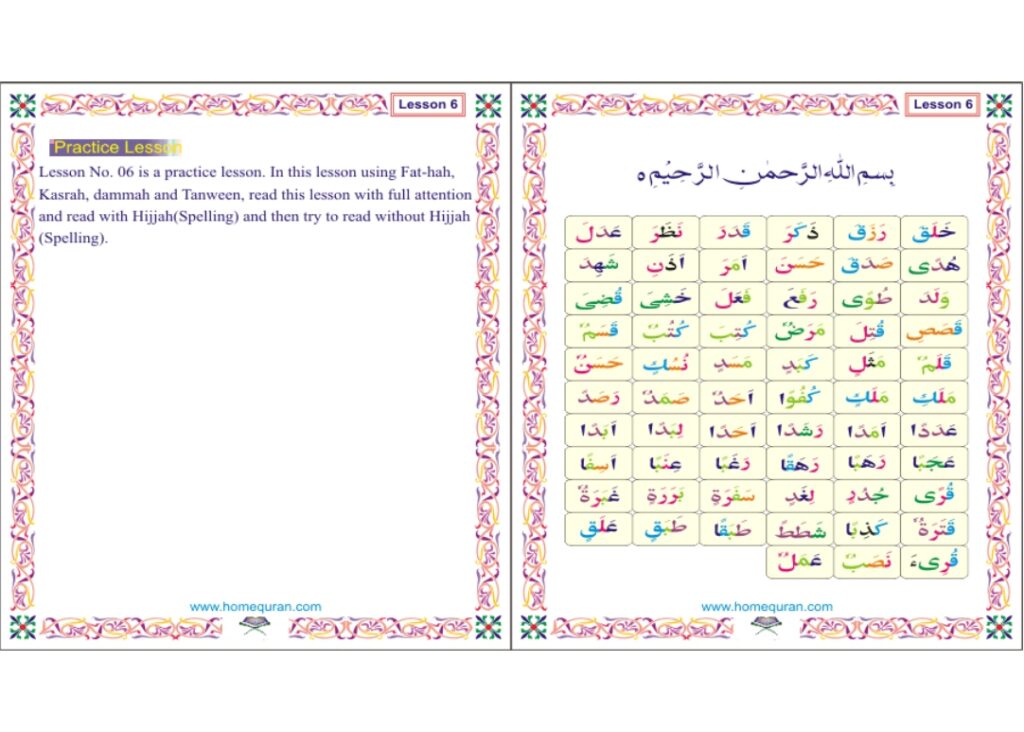 Lesson 6
Practice Lesson
Lesson No. 06 is a practice lesson. In this lesson using Fat-hah,
Kasrah, dammah and Tanween, read this lesson with full attention
and read with Hijjah(Spelling) and then try to read without Hijjah
(Spelling).
www.homequran.com
Lesson 6
بِسمِ اللهِ الرَّحمٰنِ الرَّحِيْمِ ه
خَلَقَ رَزَقَ ذَكَرَ قَدَرَ نَظَرَ عَدَلَ
هُدًى صَدَقَ حَسَنَ اَمَرَ اَذِنَ شَهِدَ
وَلَدَ طُوًى رَفَعَ فَعَلَ خَشِىَ قُضِىَ
قَصَصِ قُتِلَ مَرَضٌ كُتِبَ كُتُبٌ قَسَمٌ
قَلَمٌ مَثَلِ كَبَدٍ مَسَدٍ نُسُكٍ حَسَنٌ
مَلَكٍ مَلَكٍ كُفُوًا اَحَدٌ صَمَدٌ رَصَدٌ
عَدَدًا اَمَدًا رَشَدًا اَحَدًا لِبَدًا اَبَدًا
عَجَبًا رَهَبًا رَهَقًا رَغَبًا عِنَبًا اَسِفًا
قُرًى جُدُدٍ لِغَدٍ سَفَرَةٍ بَرَرَةٍ غَبَرَةٌ
قَتَرَةٌ كَذِبًا شَطَطً طَبَقًا طَبَقٍ عَلَقٍ
قُرِىءَ نَصَبٌ عَمَلٌ
www.homequran.com